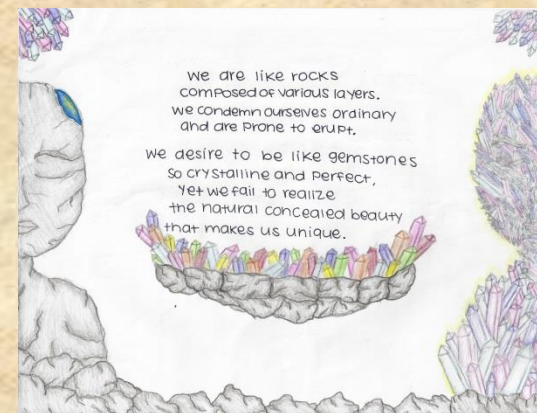 we are like rocks
composed of various layers.
we condemn ourselves ordinary
and are prone to erupt.
we desire to be like gemstones
so crystalline and perfect,
yet we fail to realize
the natural concealed beauty
that makes us unique.